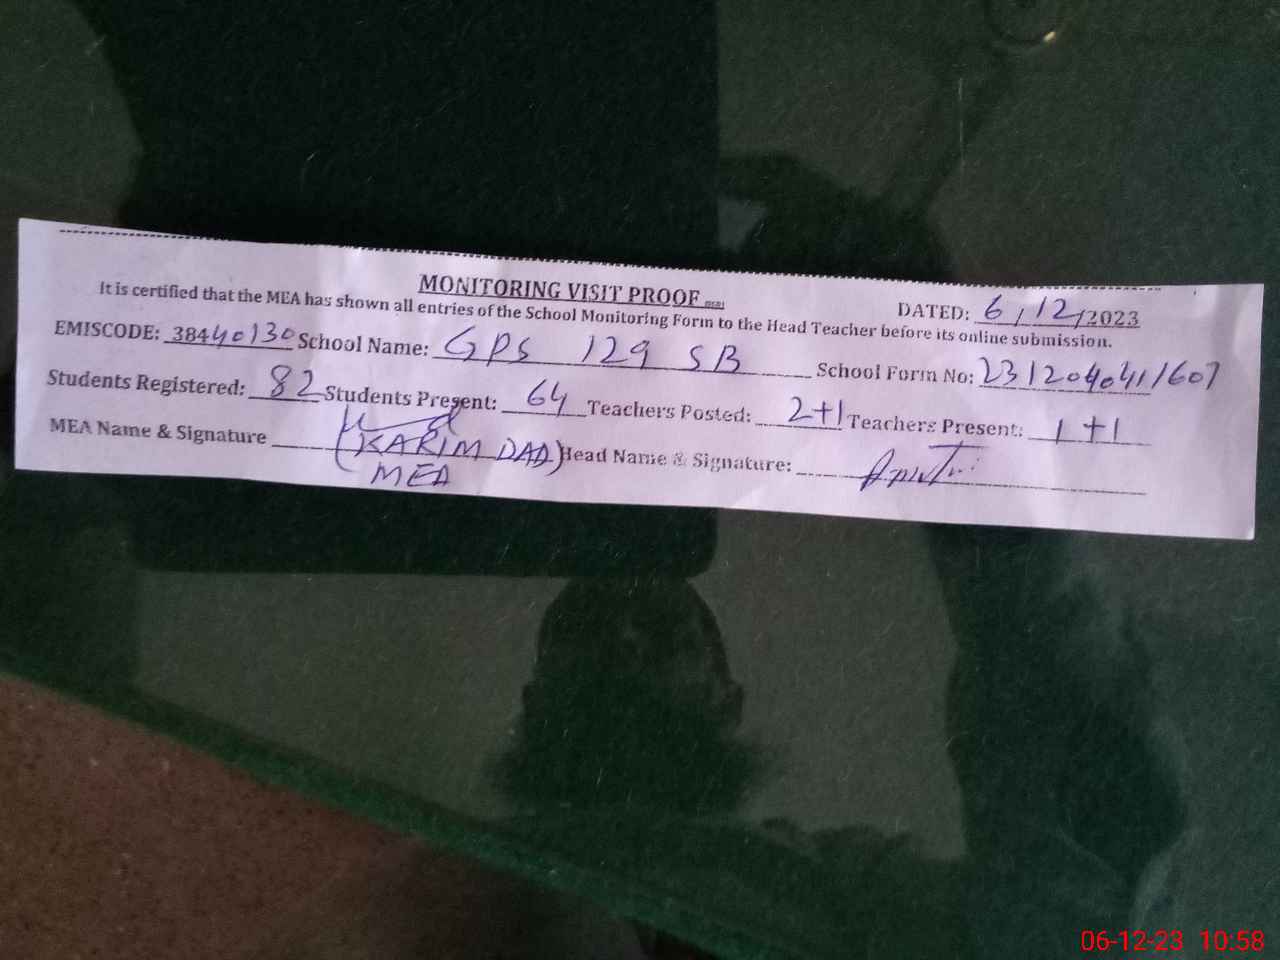 MONITORING VISIT PROOF
DATED: 6/12/2023
It is certified that the MEA has shown all entries of the School Monitoring Form to the Head Teacher before its online submission.
EMISCODE: 38440130 School Name: GPS 129 SB School Form No: 2312040411607
Students Registered: 82 Students Present: 64 Teachers Posted: 2+1 Teachers Present: 1+1
MEA Name & Signature (KARIM DAD) Head Name & Signature:
MEA
06-12-23 10:58